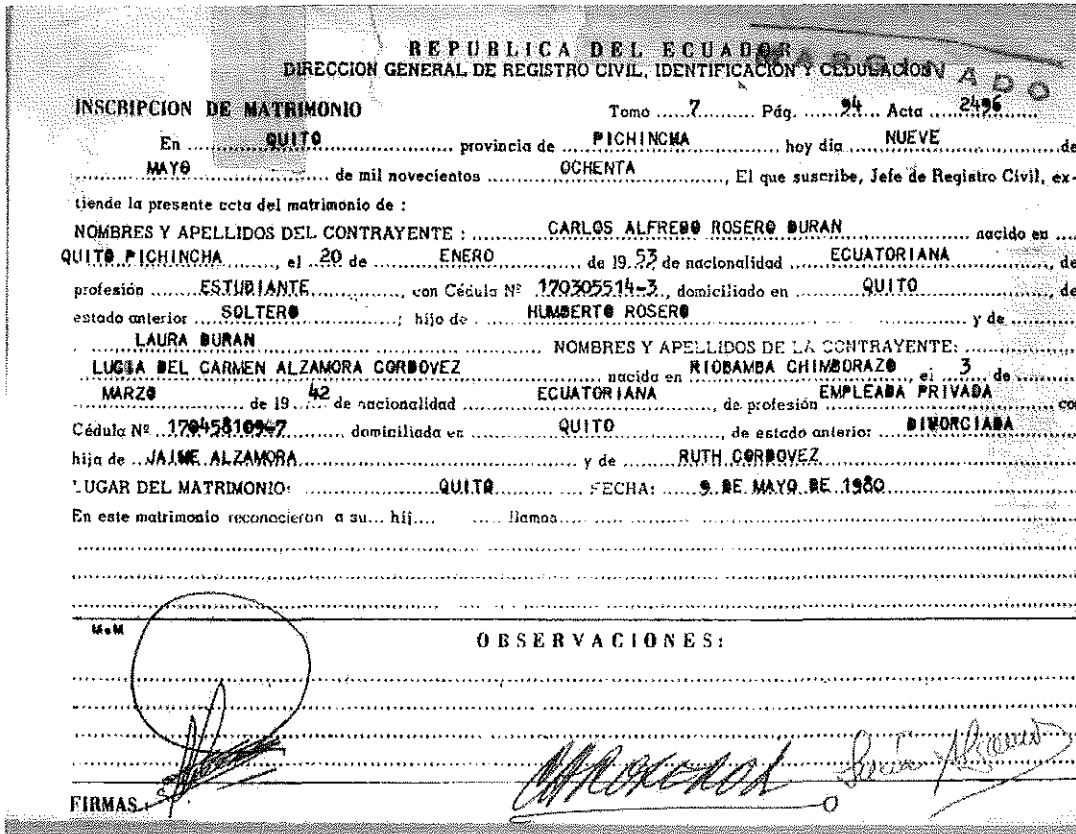 REPUBLICA DEL ECUADOR
DIRECCION GENERAL DE REGISTRO CIVIL, IDENTIFICACION Y CEDULACION
MARGINADO
INSCRIPCION DE MATRIMONIO Tomo ......7......... Pág. ......94.... Acta .....2496......
En .............QUITO................ provincia de ........PICHINCHA............ hoy día .......NUEVE................de
..............MAYO................ de mil novecientos ..............OCHENTA................, El que suscribe, Jefe de Registro Civil, ex-
tiende la presente acta del matrimonio de :
NOMBRES Y APELLIDOS DEL CONTRAYENTE : ............CARLOS ALFREDO ROSERO DURAN.............. nacido en ....
QUITO PICHINCHA........., el ..20 de ..........ENERO............... de 19..53 de nacionalidad .......ECUATORIANA............, de
profesión .......ESTUDIANTE............., con Cédula Nº ..170305514-3.., domiciliado en .........QUITO..............., de
estado anterior ......SOLTERO...............; hijo de ........HUMBERTO ROSERO................................ y de ..........
.........LAURA DURAN................. NOMBRES Y APELLIDOS DE LA CONTRAYENTE: ................
..LUCIA DEL CARMEN ALZAMORA CORDOVEZ............... nacida en ..RIOBAMBA CHIMBORAZO.., el ...3... de .........
....MARZO........... de 19...42 de nacionalidad .........ECUATORIANA............, de profesión ..EMPLEADA PRIVADA........ con
Cédula Nº ..17045810947......... domiciliada en ..........QUITO................, de estado anterior ....DIVORCIADA.......
hija de ..JAIME ALZAMORA............................... y de ........RUTH CORDOVEZ..............................
LUGAR DEL MATRIMONIO: ................QUITO............. FECHA: .......9 DE MAYO DE 1980.....................
En este matrimonio reconocieron a su... hij.... ..... llamos.................
M.M
OBSERVACIONES:
FIRMAS.: